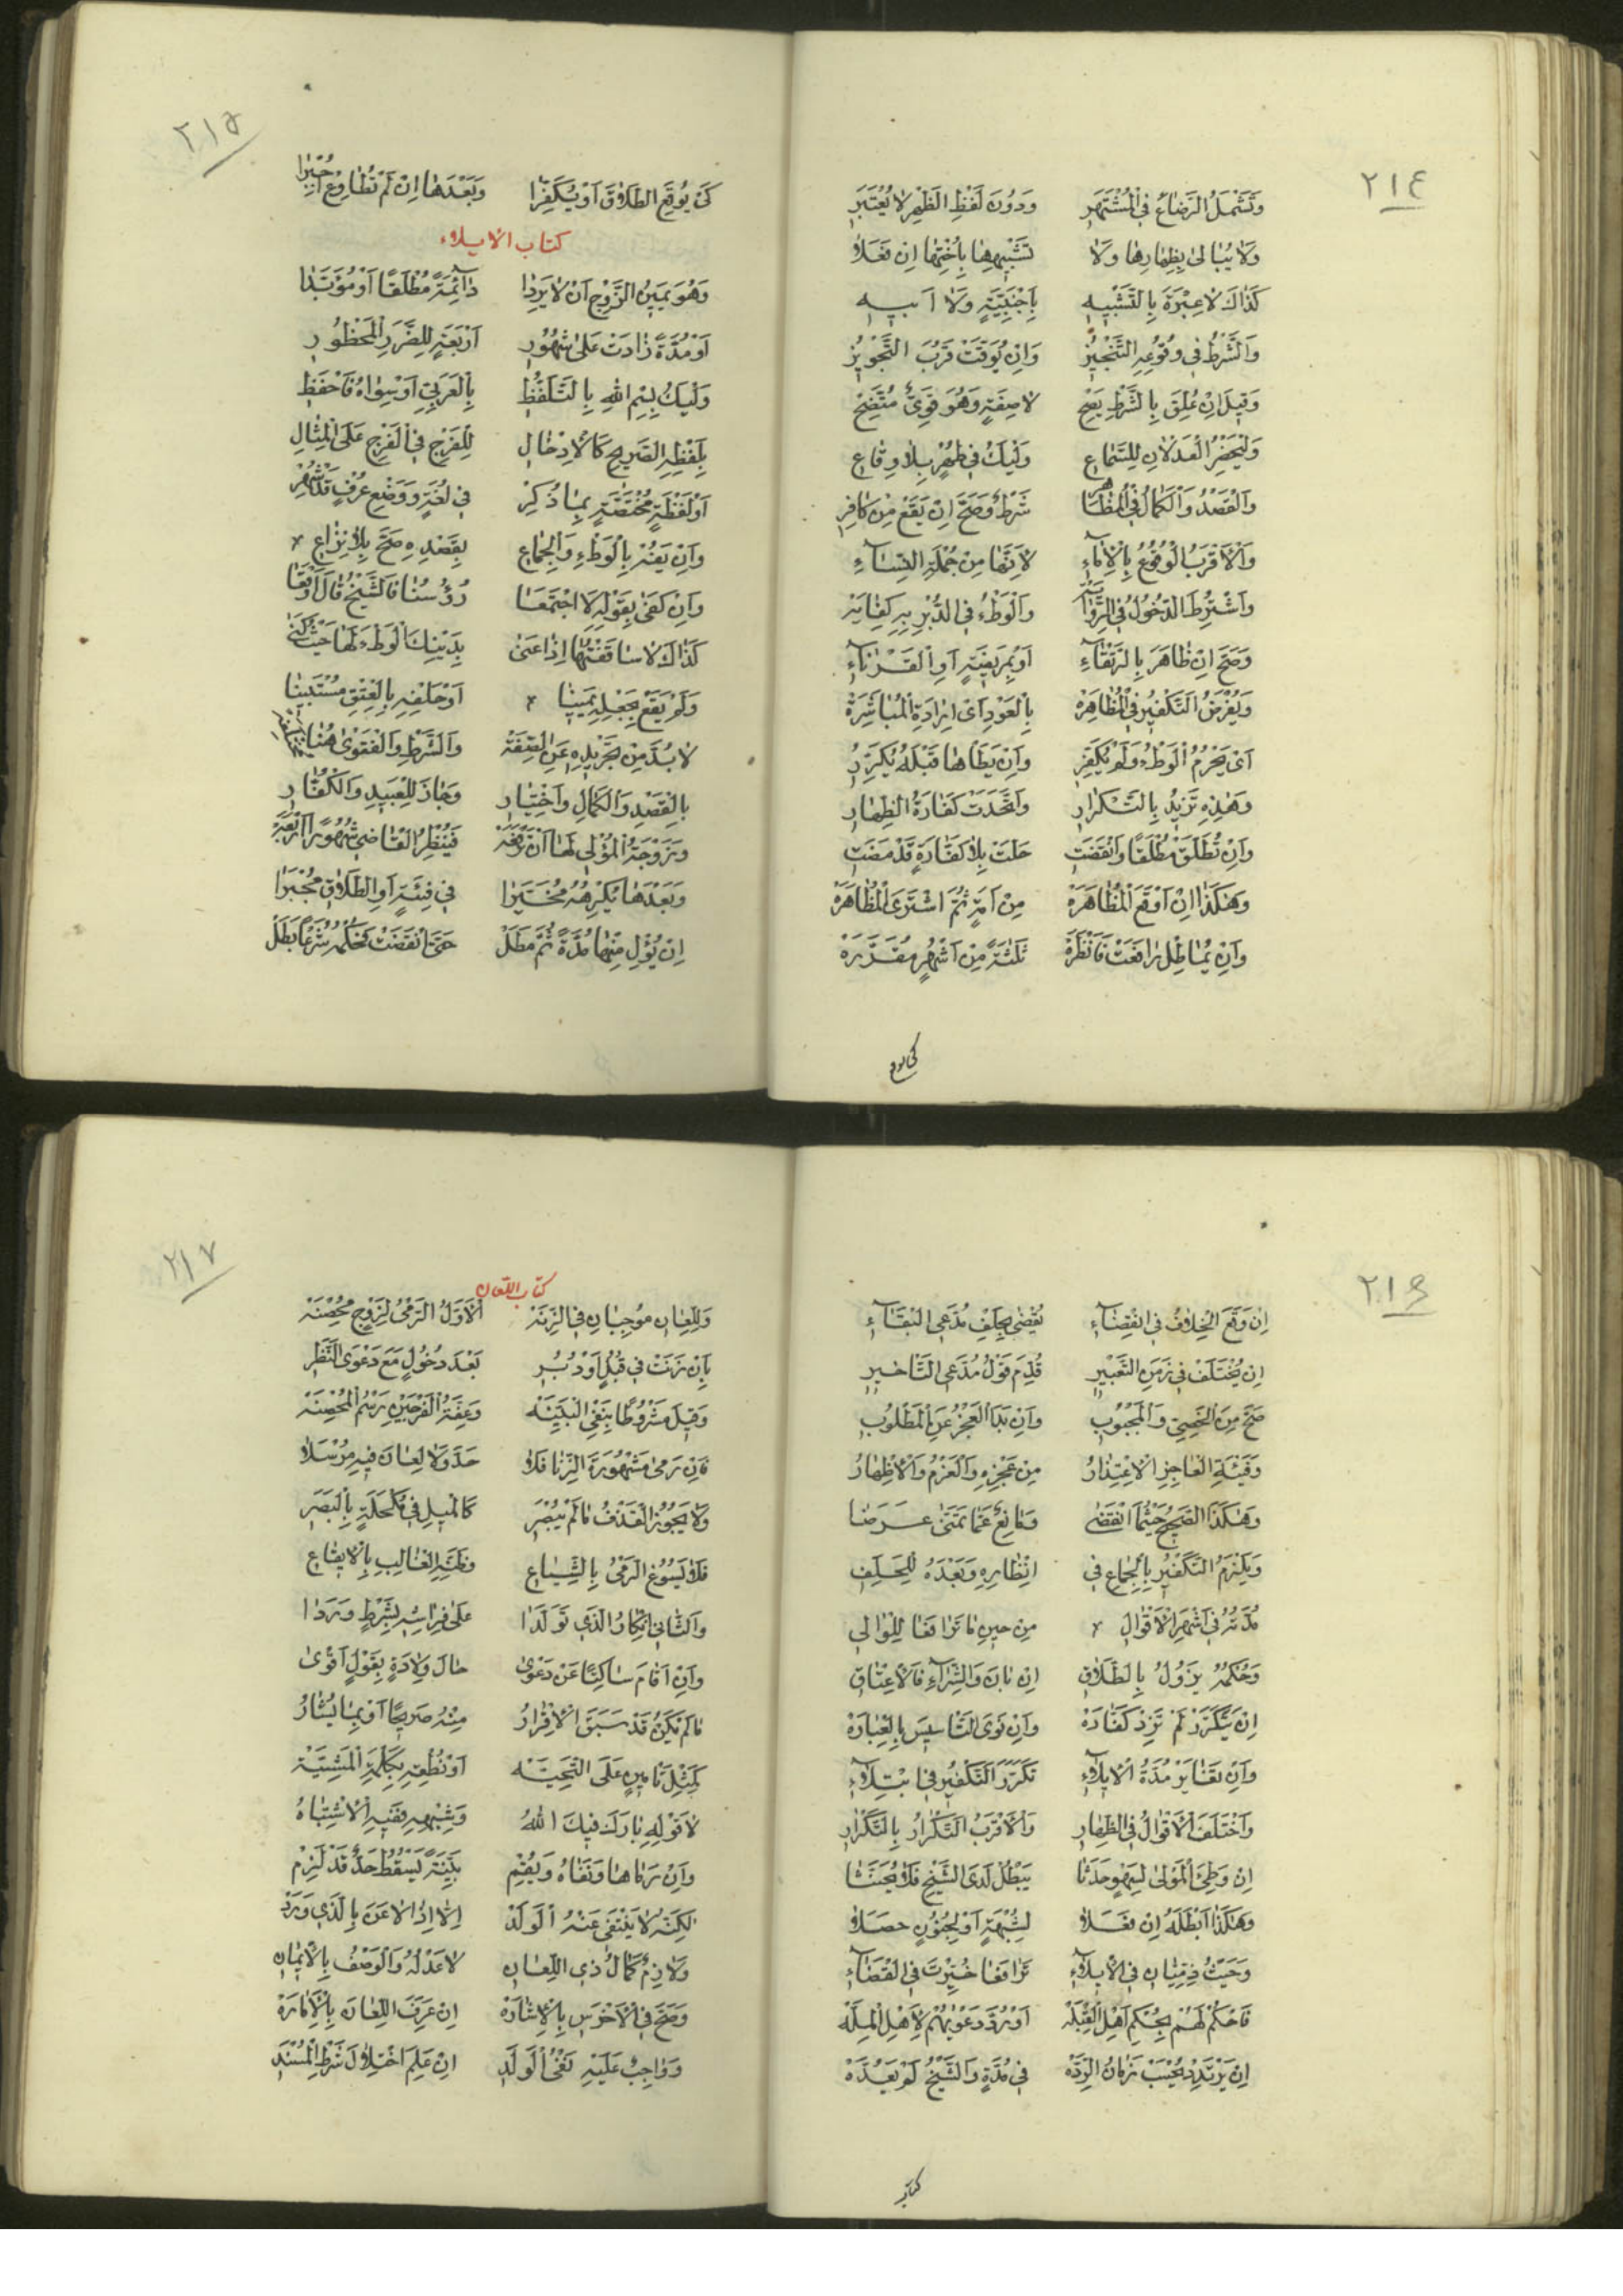 ٢١٤
وَتَشْمَلُ الرَّضَاعُ فِي الْمُشْتَهَرِ وَدُونَ لَفْظِ الظَّهْرِ لَا يُعْتَبَرِ
وَلَا يُبَالَىٰ بِظِهَارِهَا وَلَا تَشْبِيهِهَا بِأُخْتِهَا اِنْ فَعَلَا
كَذَاكَ لَا عِبْرَةَ بِالتَّشْبِيهِ بِأَجْنَبِيَّةٍ وَلَا اَبِيهِ
وَالشَّرْطُ فِي وُقُوعِهِ التَّنْجِيزُ وَاِنْ يُوَقَّتْ قَرُبَ التَّجْوِيزُ
وَقِيلَ اِنْ عُلِّقَ بِالشَّرْطِ يَصِحّ لَا صِفَةٍ وَهُوَ قَوِيٌّ مُتَّضِحْ
وَلْيَحْضُرِ الْعَدْلَانِ لِلسَّمَاعِ وَلْيَكُ فِي طُهْرٍ بِلَا وِقَاعِ
وَالْقَصْدُ وَالْكَمَالُ فِي الْمُظَاهِرِ شَرْطٌ وَصَحَّ اِنْ يَقَعْ مِنْ كَافِرِ
وَالْاَقْرَبُ الْوُقُوعُ بِالْاِمَاءِ لِاَنَّهَا مِنْ جُمْلَةِ النِّسَاءِ
وَاشْتُرِطَ الدُّخُولُ فِي الرِّوَايَه وَالْوَطْءُ فِي الدُّبْرِ بِهِ كِفَايَه
وَصَحَّ اِنْ ظَاهَرَ بِالرَّتْقَاءِ اَوْ بِمَرِيضَةٍ اَوِ الْقَرْنَاءِ
وَيُفْرَضُ التَّكْفِيرُ فِي الْمُظَاهَرَه بِالْعَوْدِ اَيْ اِرَادَةِ الْمُبَاشَرَةْ
اَيْ يَحْرُمُ الْوَطْءُ وَلَمْ يُكَفِّرِ وَاِنْ يَطَأْهَا قَبْلَهُ يُكَرِّرُ
وَهٰذِهِ تَزِيدُ بِالتَّكْرَارِ وَاتَّحَدَتْ كَفَّارَةُ الظِّهَارِ
وَاِنْ تُطَلَّقْ مُطْلَقًا وَانْقَضَتِ حَلَّتْ بِلَا كَفَّارَةٍ قَدْ مَضَتِ
وَهٰكَذَا اِنْ اَوْقَعَ الْمُظَاهَرَهْ مِنْ اَمَةٍ ثُمَّ اشْتَرَى الْمُظَاهَرَهْ
وَاِنْ يُمَاطِلْ رَافَعَتْ فَاَنْظَرَهْ ثَلٰثَةً مِنْ اَشْهُرٍ مُقَدَّرَهْ
كى يوقع
٢١٥
كَيْ يُوقِعَ الطَّلَاقَ اَوْ يُكَفِّرَا وَبَعْدَهَا اِنْ لَمْ تُطَاوِعْ
كتاب الايلاء
وَهُوَ يَمِينُ الزَّوْجِ اَنْ لَا يَرِدَا دَائِمَةً مُطْلَقًا اَوْ مُؤَبَّدَا
اَوْ مُدَّةً زَادَتْ عَلَىٰ شُهُورِ اَرْبَعَةٍ لِلضَّرَرِ الْمَحْظُورِ
وَلْيَكُ بِسْمِ اللهِ بِالتَّلَفُّظِ بِالْعَرَبِيِّ اَوْ سِوَاهُ فَاحْفَظِ
بِلَفْظِهِ الصَّرِيحِ كَالْاِدْخَالِ لِلْفَرْجِ فِي الْفَرْجِ عَلَى الْمِثَالِ
اَوْ لَفْظَةٍ مُخْتَصَّةٍ بِمَا ذُكِرْ فِي لُغَةٍ وَوَضْعِ عُرْفٍ قَدْ شُهِرْ
وَاِنْ يَفُهْ بِالْوَطْءِ وَالْجِمَاعِ بِقَصْدِهِ صَحَّ بِلَا نِزَاعِ
وَاِنْ كَفَىٰ بِقَوْلِهِ لَا اجْتَمَعَا رُؤُسُنَا فَالشَّيْخُ قَالَ اَوْقَعَا
كَذَاكَ لَا سَاقَفْتُهَا اِذَا عَنَىٰ بِذَيْنِكَ الْوَطْءَ لَهَا حَيْثُ كَنَىٰ
وَلَمْ يَقَعْ بِجَعْلِهِ يَمِينًا اَوْ حَلْفِهِ بِالْعِتْقِ مُسْتَبِينًا
لَابُدَّ مِنْ تَجْرِيدِهِ عَنِ الصِّفَهْ وَالشَّرْطِ وَالْفَتْوَىٰ هُنَا
بِالْقَصْدِ وَالْكَمَالِ وَاخْتِيَارِ وَجَازَ لِلْعَبِيدِ وَالْكُفَّارِ
وَزَوْجَةُ الْمُؤْلِي لَهَا اَنْ تَرْفَعَهْ فَيُنْظِرُ الْقَاضِي شُهُورًا اَرْبَعَهْ
وَبَعْدَهَا يُكْرِهُهُ مُخَيَّرَا فِي فِئَةٍ اَوِ الطَّلَاقِ مُجْبَرَا
اِنْ يُؤْلِ مِنْهَا مُدَّةً ثُمَّ مَطَلْ حَتَّى انْقَضَتْ فَحُكْمُهُ شَرْعًا بَطَلْ
٢١٦
اِنْ وَقَعَ الْخِلَافُ فِي انْقِضَاءِ يُقْضَىٰ بِحَلْفِ مُدَّعِي الْبَقَاءِ
اِنْ يُخْتَلَفْ فِي زَمَنِ التَّعْبِيرِ قُدِّمَ قَوْلُ مُدَّعِي التَّأْخِيرِ
صَحَّ مِنَ الْخَصِيِّ وَالْمَجْبُوبِ وَاِنْ بَدَا الْعَجْزُ عَنِ الْمَطْلُوبِ
وَفَيْئَةِ الْعَاجِزِ الْاِعْتِذَارُ مِنْ عَجْزِهِ وَالْعَزْمُ وَالْاِظْهَارُ
وَهٰكَذَا الصَّحِيحُ حَيْثُمَا انْقَضٰى وَمَانِعٌ عَمَّا تَمَنَّىٰ عَرَضَا
وَيَلْزَمُ التَّكْفِيرُ بِالْجِمَاعِ فِي اِنْظَارِهِ وَبَعْدَهُ لِلْحَلِفِ
مُدَّتُهُ فِي اَشْهَرِ الْاَقْوَالِ مِنْ حِينِ مَا تَرَافَعَا لِلْوَالِي
وَحُكْمُهُ يَزُولُ بِالطَّلَاقِ اِنْ بَانَ وَالشِّرَاءِ فَالْاِعْتَاقِ
اِنْ يَتَكَرَّرْ لَمْ تَزِدْ كَفَّارَهْ وَاِنْ نَوَى التَّأْسِيسَ بِالْعِبَارَهْ
وَاِنْ تَغَايَرْ مُدَّةُ الْاِيلَاءِ تَكَرَّرَ التَّكْفِيرُ فِي ابْتِلَاءِ
وَاخْتَلَفَ الْاَقْوَالُ فِي الظِّهَارِ وَالْاَقْرَبُ التَّكْرَارُ بِالتَّكْرَارِ
اِنْ وَطِئَ الْمَوْلَىٰ لِسَهْوٍ حَدَثَا يَبْطُلْ لَدَى الشَّيْخِ فَلَا يُحَنَّثَا
وَهٰكَذَا اَبْطَلَهُ اِنْ فَعَلَا لِشُبْهَةٍ اَوْ لِجُنُونٍ حَصَلَا
وَحَيْثُ ذِمِّيَّانِ فِي الْاِيلَاءِ تَرَافَعَا خُيِّرْتَ فِي الْقَضَاءِ
فَاحْكُمْ لَهُمْ بِحُكْمِ اَهْلِ الْقِبْلَهْ اَوْ رُدَّ دَعْوٰيهُمْ لِاَهْلِ الْمِلَّهْ
اِنْ يَرْتَدِدْ يُحْسَبْ زَمَانُ الرِّدَّهْ فِي مُدَّةٍ وَالشَّيْخُ لَمْ يَعُدَّهْ
كتاب
٢١٧
كتاب اللعان
وَلِلِّعَانِ مُوجِبَانِ فِي الزِّنَهْ اَلْاَوَّلُ الرَّمْيُ لِزَوْجٍ مُحْصَنَهْ
بِاَنْ زَنَتْ فِي قُبُلٍ اَوْ دُبُرِ بَعْدَ دُخُولٍ مَعَ دَعْوَى النَّظَرِ
وَقِيلَ مَشْرُوطًا بِنَفْيِ الْبَيِّنَهْ وَعِفَّةُ الْفَرْجَيْنِ رَسْمُ الْمُحْصَنَهْ
فَاِنْ رَمَىٰ مَشْهُورَةَ الزِّنَا فَلَا حَدَّ وَلَا لِعَانَ فِيهِ مُرْسَلَا
وَلَا يَجُوزُ الْقَذْفُ مَا لَمْ يُبْصَرِ كَالْمِيلِ فِي مُكْحُلَةٍ بِالْبَصَرِ
فَلَا يَسُوغُ الرَّمْيُ بِالشِّيَاعِ وَظَنِّهِ الْغَالِبِ بِالْاِيقَاعِ
وَالثَّانِي اِنْكَارُ الَّذِي تَوَلَّدَا عَلَىٰ فِرَاشِهِ بِشَرْطٍ وَرَدَا
وَاِنْ اَقَامَ سَاكِتًا عَنْ دَعْوٰى حَالَ وِلَادَةٍ بِقَوْلٍ اَقْوٰى
مَا لَمْ يَكُنْ قَدْ سَبَقَ الْاِقْرَارُ مِنْهُ صَرِيحًا اَوْ بِمَا يُشَارُ
كَمِثْلِ تَأْمِينٍ عَلَى التَّحِيَّهْ اَوْ نُطْقِهِ بِكَلْمَةِ الْمَشِيَّةْ
لَا قَوْلِهِ بَارَكَ فِيكَ اللهُ وَشِبْهِهِ فَفِيهِ الْاِشْتِبَاهُ
وَاِنْ رَمَاهَا وَنَفَاهُ وَيُقِمْ بَيِّنَةً يَسْقُطُ حَدٌّ قَدْ لَزِمْ
لٰكِنَّهُ لَا يَنْتَفِي عَنْهُ الْوَلَدْ اِلَّا اِذَا لَاعَنَ بِالَّذِي وَرَدْ
وَلَازِمٌ كَمَالُ ذِي اللِّعَانِ لَا عَدْلُهُ وَالْوَصْفُ بِالْاِيمَانِ
وَصَحَّ فِي الْاَخْرَسِ بِالْاِشَارَهْ اِنْ عَرَفَ اللِّعَانَ بِالْاَمَارَهْ
وَوَاجِبٌ عَلَيْهِ نَفْيُ الْوَلَدِ اِنْ عَلِمَ اخْتِلَالَ شَرْطِ الْمُسْنَدِ